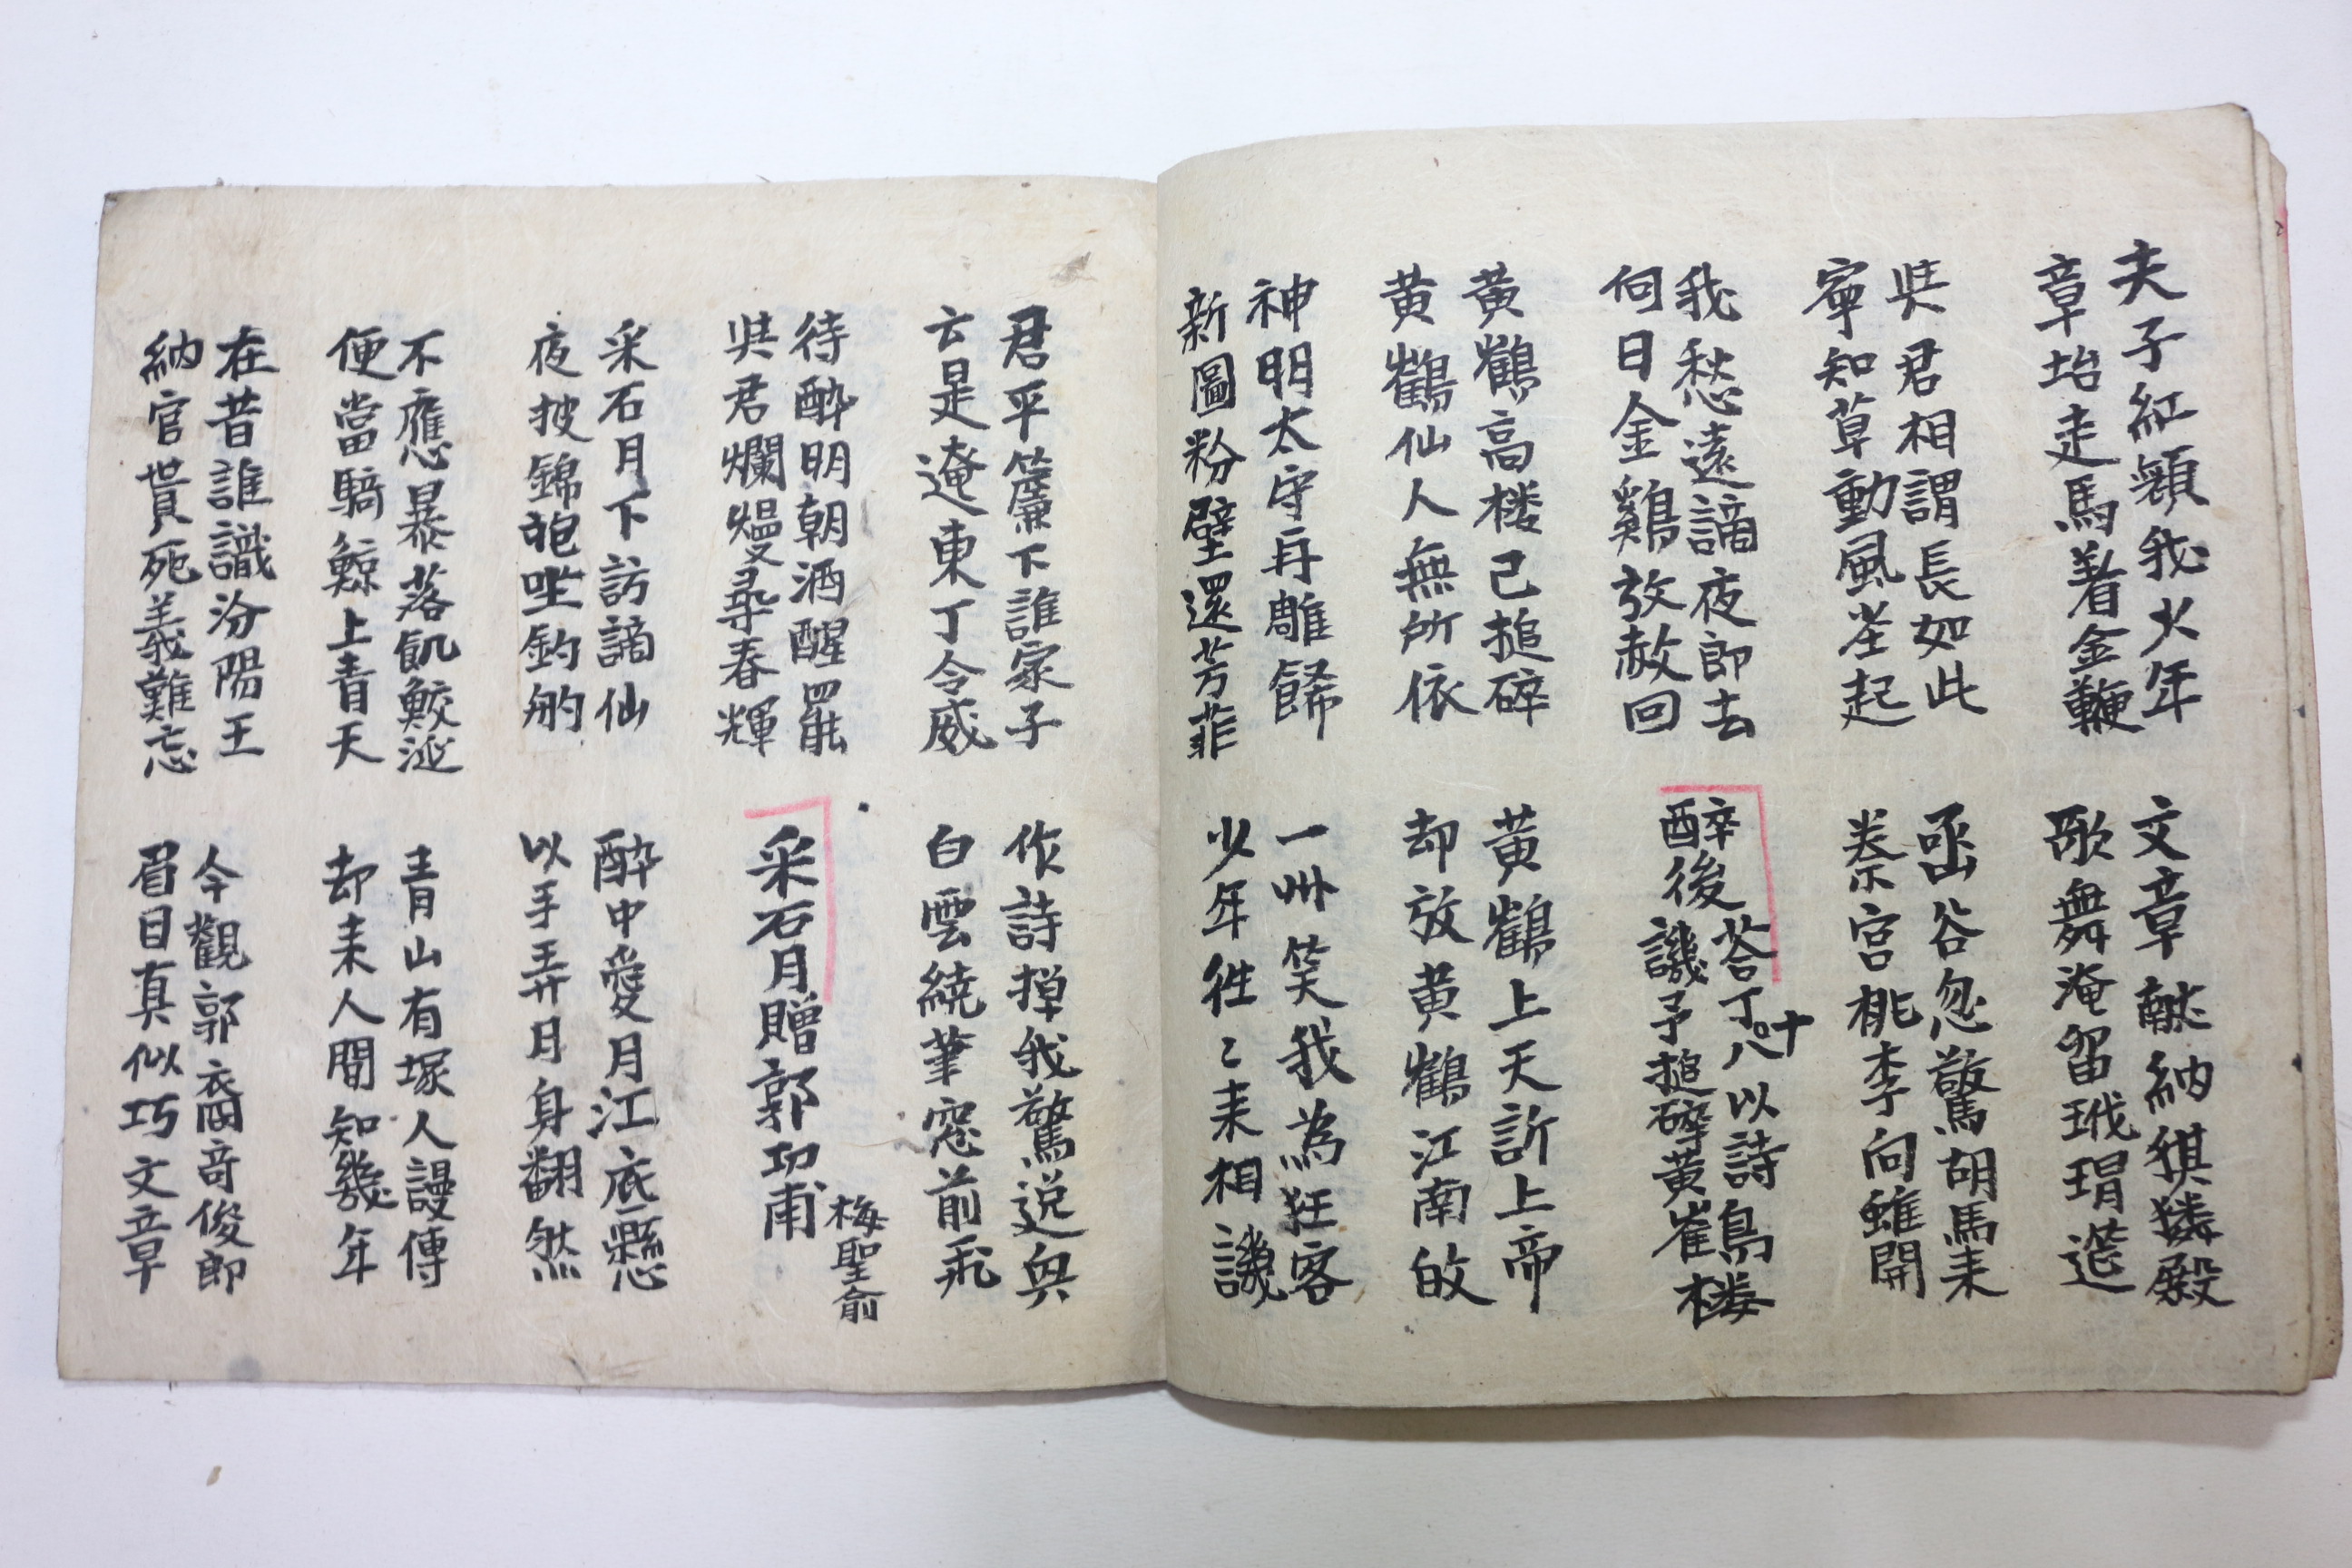 夫子紅顔我少年
章坮走馬着金鞭
文章献納猉獜殿
歌舞淹留玳瑁筵
㒷君相謂長如此
寧知草動風茔起
函谷忽驚胡馬来
秦宮桃李向誰開
我愁遠謫夜郎去
何日金鷄放赦回
醉後荅丁十八以詩譏予搥碎黄鶴楼
黄鶴高楼已搥碎
黄鶴仙人無所依
黄鶴上天訢上帝
却放黄鶴江南㱕
神明太守再雕餙
新圖粉壁還芳菲
一州笑我為狂客
少年往〻来相譏
君平簾下誰家子
云是遼東丁令威
作詩掉我驚逸興
白雲繞筆窓前飛
待酔明朝酒醒罷
㒷君爛熳尋春輝
采石月贈郭功甫
梅聖俞
采石月下訪謫仙
夜披錦袍坐釣舟
酔中愛月江底懸
以手弄月身翻然
不應暴落飢鮫涎
便當騎鯨上青天
青山有塚人謾傳
却来人間知幾年
在昔誰識汾陽王
納官貰死義難忘
今觀郭裔奇俊郎
眉目真似巧文章